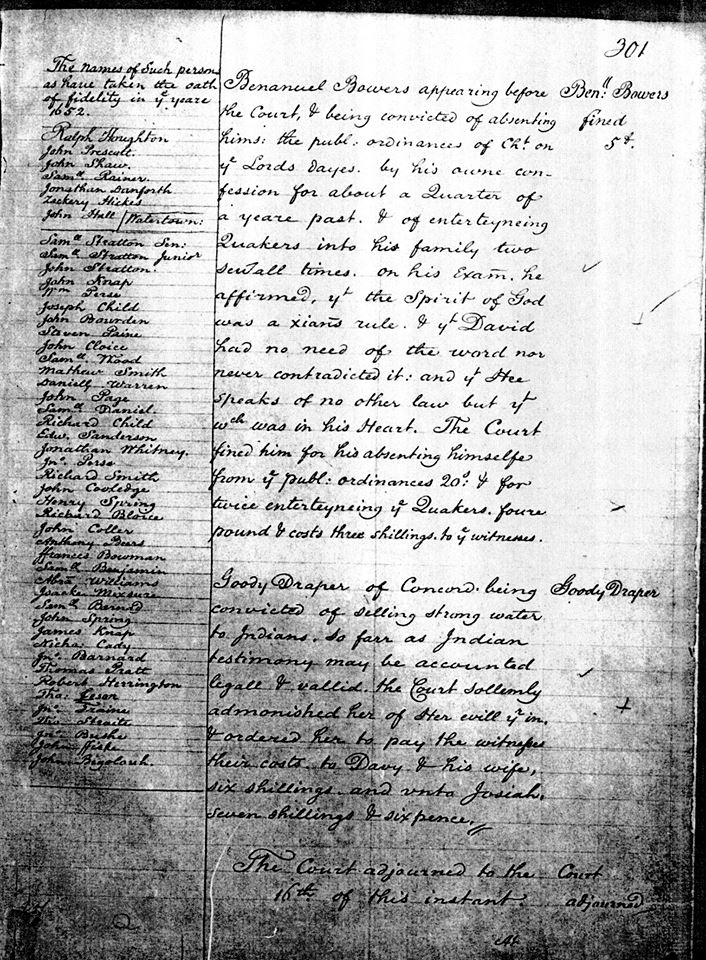 301
The names of Such persons
as have taken the oath
of fidelity in yͤ yeare
1652.
Ralph Houghton
John Prescult.
John Shaw.
Samˡˡ Rainer.
Jonathan Danforth
Zackery Hickes
John Hall / Watertown:
Samˡˡ Stratton Sen:
Samˡˡ Stratton Junior
John Stratton.
John Knap
Wᵐ Perse
Joseph Child
John Bowrden
Steven Paine
John Cloice
Samˡˡ Wood
Mathew Smith
Daniell Warren
John Page
Samˡˡ Daniel.
Richard Child
Edw. Sanderson
Jonathan Whitney.
Jnᵒ Perse
Richard Smith
John Cooledge
Henry Spring
Richard Bloice
John Coller
Anthony Beers
ffrances Bowman
Samˡˡ Benjamin
Abrᵐ Williams
Isacke Mixsure
Samˡˡ Bernᵈ
John Spring
James Knap
Nicho: Cady
Jnᵒ Barnard
Thomas Pratt
Robert Herrington
Tho:
Jnᵒ Traine
Tho: Straite
Jnᵒ Biske
John ffiske
John Bigolouh
Benanuel Bowers appearing before
the Court, & being convicted of absenting
hims: the publ: ordinances of Chᵗ. on
yͤ Lords dayes. by his owne con-
fession for about a Quarter of
a yeare past. & of enterteyneing
Quakers into his family two
sevˡall times. on his Exam̃. he
affirmed, yᵗ the Spirit of God
was a xiañs rule. & yᵗ David
had no need of the word nor
never contradicted it: and yᵗ Hee
speaks of no other law but yᵗ
wᶜʰ was in his Heart. The Court
fined him for his absenting himselfe
from yͤ publ: ordinances 20ˢ: & for
twice enterteyneing yͤ Quakers. foure
pound & costs three shillings. to yͤ witnesses.
Benˡˡ: Bowers
fined
5ᵗ.
Goody Draper of Concord. being
convicted of selling strong water
to Indians. so farr as Indian
testimony may be accounted
legall & vallid. the Court sollemly
admonished her of Her evill yʳ in.
& ordered her to pay the witnesses
their costs. to Davy & his wife,
six shillings. and vnto Josiah,
seven shillings & sixpence.
Goody Draper
The Court adjourned to the
16ᵗʰ of this instant.
Court
adjourned